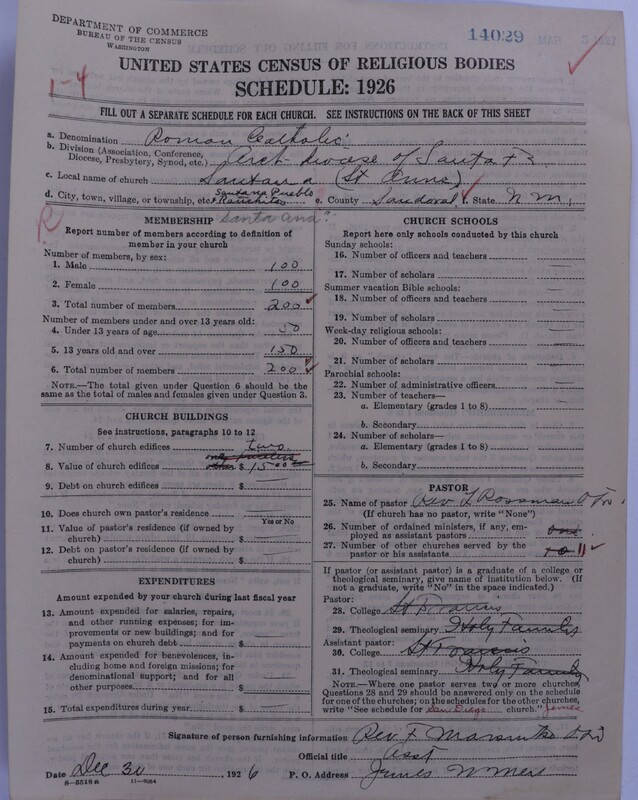 DEPARTMENT OF COMMERCE
BUREAU OF THE CENSUS
WASHINGTON
14029
MAR 3 1927
1-4
UNITED STATES CENSUS OF RELIGIOUS BODIES
SCHEDULE: 1926
FILL OUT A SEPARATE SCHEDULE FOR EACH CHURCH. SEE INSTRUCTIONS ON THE BACK OF THIS SHEET
a. Denomination Roman Catholic
b. Division (Association, Conference,
Diocese, Presbytery, Synod, etc.) Arch-diocese of Santa Fe
c. Local name of church Santana (St Anns)
Santana Pueblo
d. City, town, village, or township, etc. Ranchitos e. County Sandoval f. State N M,
R
Santa Ana?
MEMBERSHIP
Report number of members according to definition of
member in your church
Number of members, by sex:
1. Male 100
2. Female 100
3. Total number of members 200
Number of members under and over 13 years old:
4. Under 13 years of age 50
5. 13 years old and over 150
6. Total number of members 200
NOTE.—The total given under Question 6 should be the
same as the total of males and females given under Question 3.
CHURCH BUILDINGS
See instructions, paragraphs 10 to 12
7. Number of church edifices two
8. Value of church edifices $ 1500
9. Debt on church edifices $
10. Does church own pastor's residence
Yes or No
11. Value of pastor's residence (if owned by
church) $
12. Debt on pastor's residence (if owned by
church) $
EXPENDITURES
Amount expended by your church during last fiscal year
13. Amount expended for salaries, repairs,
and other running expenses; for im-
provements or new buildings; and for
payments on church debt $
14. Amount expended for benevolences, in-
cluding home and foreign missions; for
denominational support; and for all
other purposes $
15. Total expenditures during year $
CHURCH SCHOOLS
Report here only schools conducted by this church
Sunday schools:
16. Number of officers and teachers
17. Number of scholars
Summer vacation Bible schools:
18. Number of officers and teachers
19. Number of scholars
Week-day religious schools:
20. Number of officers and teachers
21. Number of scholars
Parochial schools:
22. Number of administrative officers
23. Number of teachers—
a. Elementary (grades 1 to 8)
b. Secondary
24. Number of scholars—
a. Elementary (grades 1 to 8)
b. Secondary
PASTOR
25. Name of pastor Rev
(If church has no pastor, write "None")
26. Number of ordained ministers, if any, em-
ployed as assistant pastors one
27. Number of other churches served by the
pastor or his assistants 10 11
If pastor (or assistant pastor) is a graduate of a college or
theological seminary, give name of institution below. (If
not a graduate, write "No" in the space indicated.)
Pastor:
28. College St Francis
29. Theological seminary Holy Family
Assistant pastor:
30. College St Francis
31. Theological seminary Holy Family
NOTE.—Where one pastor serves two or more churches,
Questions 28 and 29 should be answered only on the schedule
for one of the churches; on the schedules for the other churches,
write "See schedule for San Diego church." Jemez
Signature of person furnishing information Rev F.
Official title Asst
Date Dec 30 1926 P. O. Address
8-5518 a